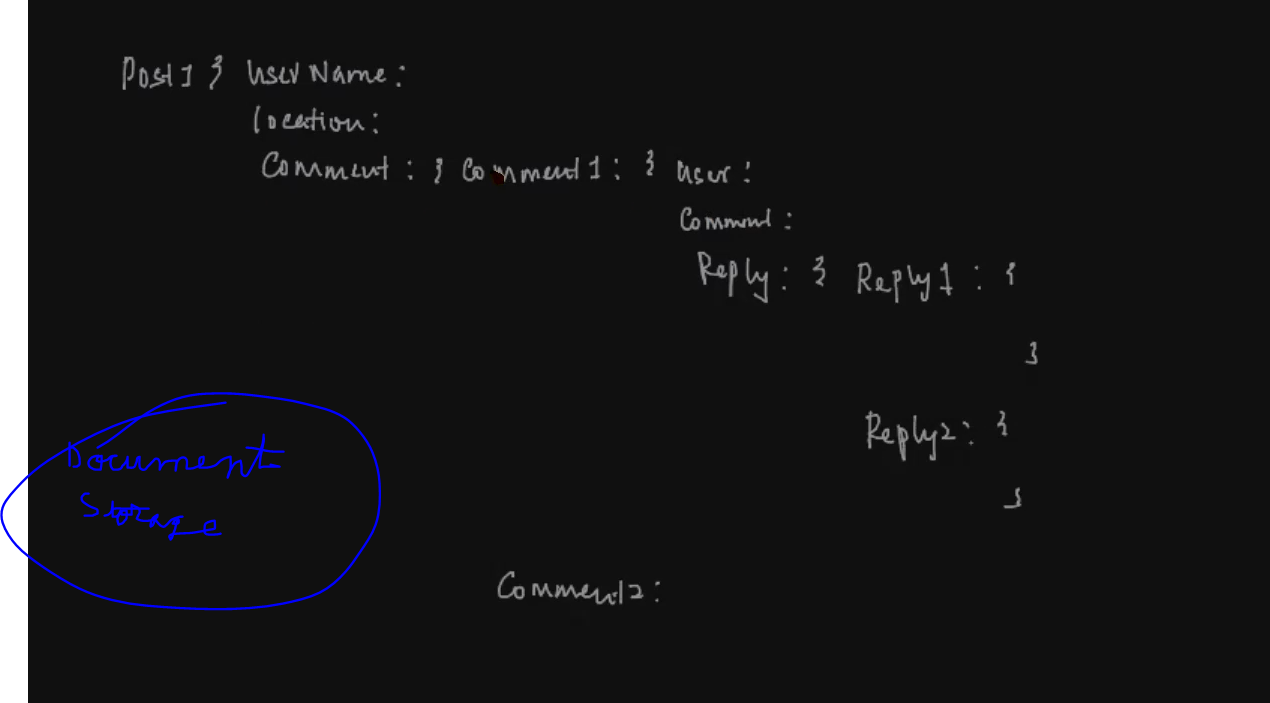 Post1 { UserName:
location:
Comment: { Comment1: { User:
Comment:
Reply: { Reply1: {
}
Reply2: {
}
Document
Storage
Comment2: